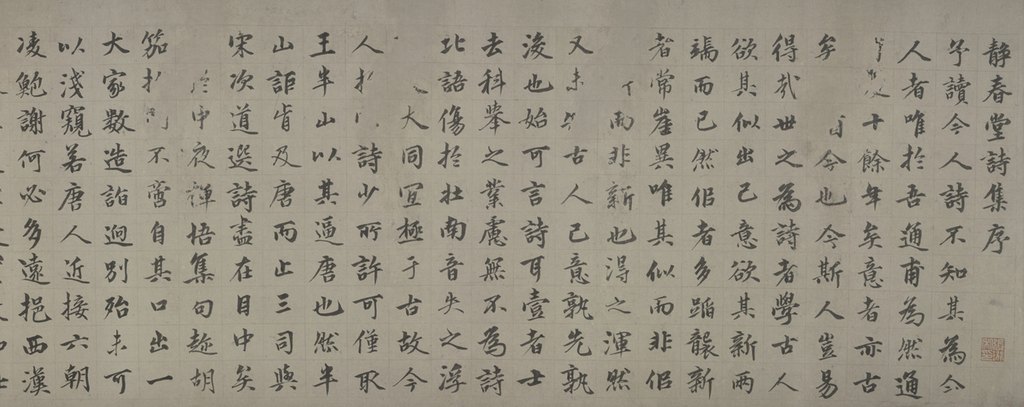 靜春堂詩集序
予讀今人詩不知其為今
人者唯於吾通甫為然通
十餘年矣意者亦古
矣今也今斯人豈易
得哉世之為詩者學古人
欲其似出己意欲其新兩
端而已然佀者多蹈襲新
者常崖異唯其似而非佀
而非新也淂之渾然
又未古人己意孰先孰
浚也始可言詩耳壹者士
去科舉之業慮無不為詩
北語傷於壯南音失之浮
大同宜極于古故今
人詩少所許可僅取
王半山以其逼唐也然半
山詎肯及唐而止三司與
宋次道選詩盡在目中矣
中夜禪悟集句趂胡
笳不啻自其口出一
大家數造詣迥別殆未可
以淺窺若唐人近接六朝
凌鮑謝何必多遠挹西漢